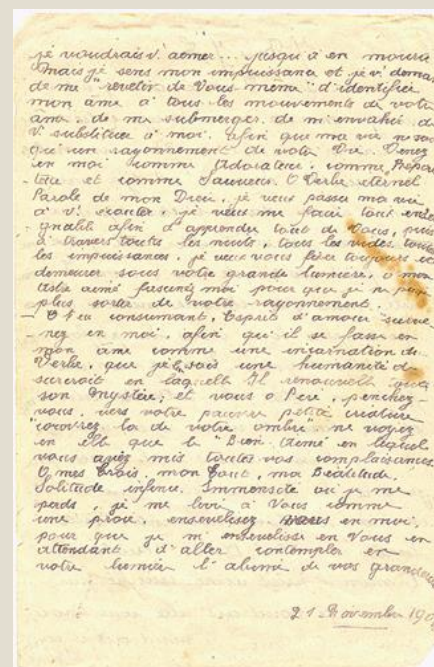 je voudrais v. aimer... jusqu'à en mourir
Mais je sens mon impuissance et je v. deman
de me "revêtir de Vous même" d'identifier
mon âme à tous les mouvements de votre
âme, de me submerger, de m'envahir, de
v. substituer à moi, afin que ma vie ne soit
qu'un rayonnement de votre Vie. Venez
en moi comme Adorateur, comme Répara
teur et comme Sauveur. O Verbe éternel
Parole de mon Dieu, je veux passer ma vie
à v. écouter, je veux me faire tout ensei
gnable afin d'apprendre tout de Vous, puis
à travers toutes les nuits, tous les vides, toutes
les impuissances, je veux vous fixer toujours et
demeurer sous votre grande lumière, ô mon
Astre aimé fascinez moi pour que je ne puisse
plus sortir de votre rayonnement.
- O Feu consumant, Esprit d'amour "surve
nez en moi", afin qu'il se fasse en
mon âme comme une incarnation du
Verbe, que je Lui sois une humanité de
surcroît en laquelle Il renouvelle tout
son Mystère, et vous ô Père, penchez
vous vers votre pauvre petite créature
"couvrez la de votre ombre" ne voyez
en elle que le "Bien-Aimé en lequel
vous avez mis toutes vos complaisances
O mes Trois, mon Tout, ma Béatitude,
Solitude infinie, Immensité où je me
perds, je me livre à Vous comme
une proie, ensevelissez vous en moi,
pour que je m'ensevelisse en Vous en
attendant d'aller contempler en
votre lumière l'abîme de vos grandeurs
21 Novembre 190